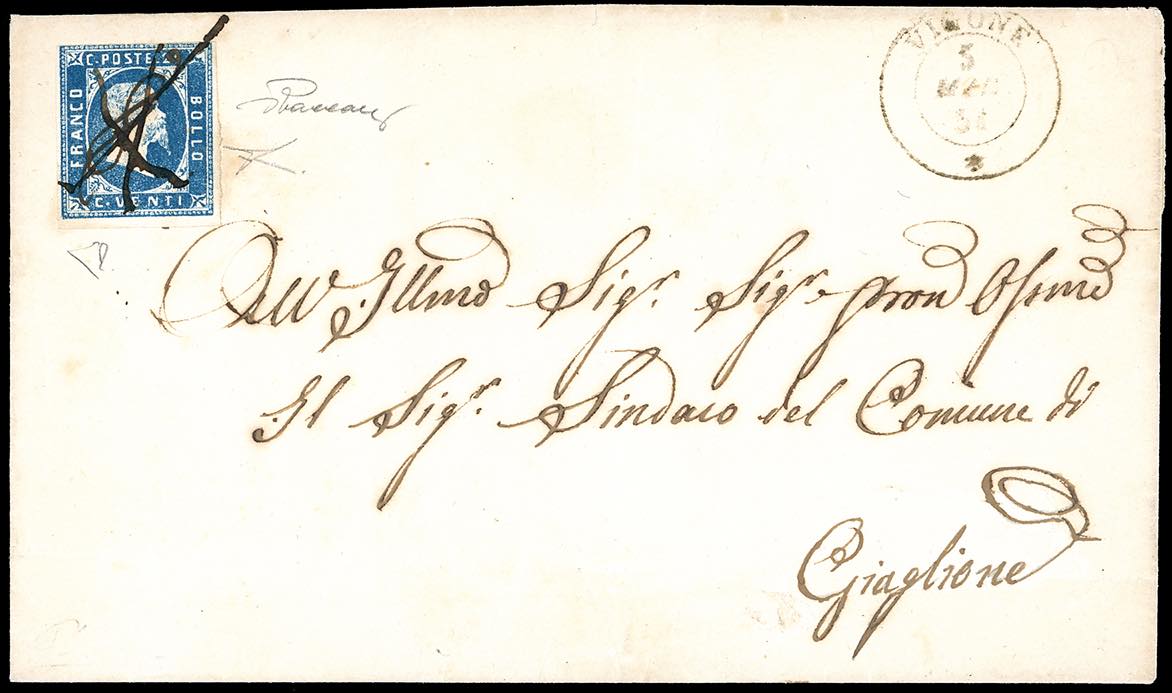 C. POSTE
FRANCO
BOLLO
C. VENTI
VIGONE
5
MAR
51
All' Illmo Sigr. Sigr. pron Osmo
Il Sigr. Sindaco del Comune di
Giaglione